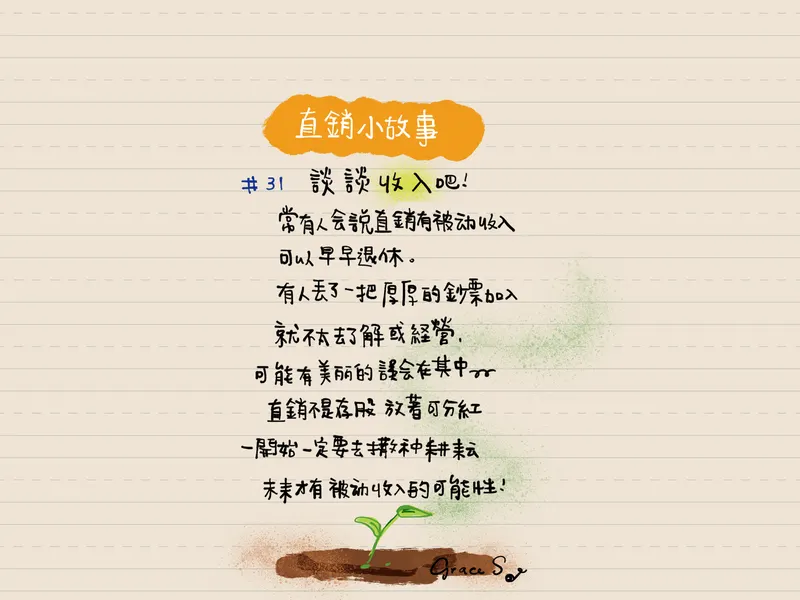 直銷小故事
# 31 談談收入吧!
常有人会說直銷有被动收入
可以早早退休。
有人丢了一把厚厚的鈔票加入
就不太去了解或経營,
可能有美丽的誤会在其中~
直銷不是存股 放著可分紅
一開始一定要去撒种耕耘
未来才有被动收入的可能性!
Grace S